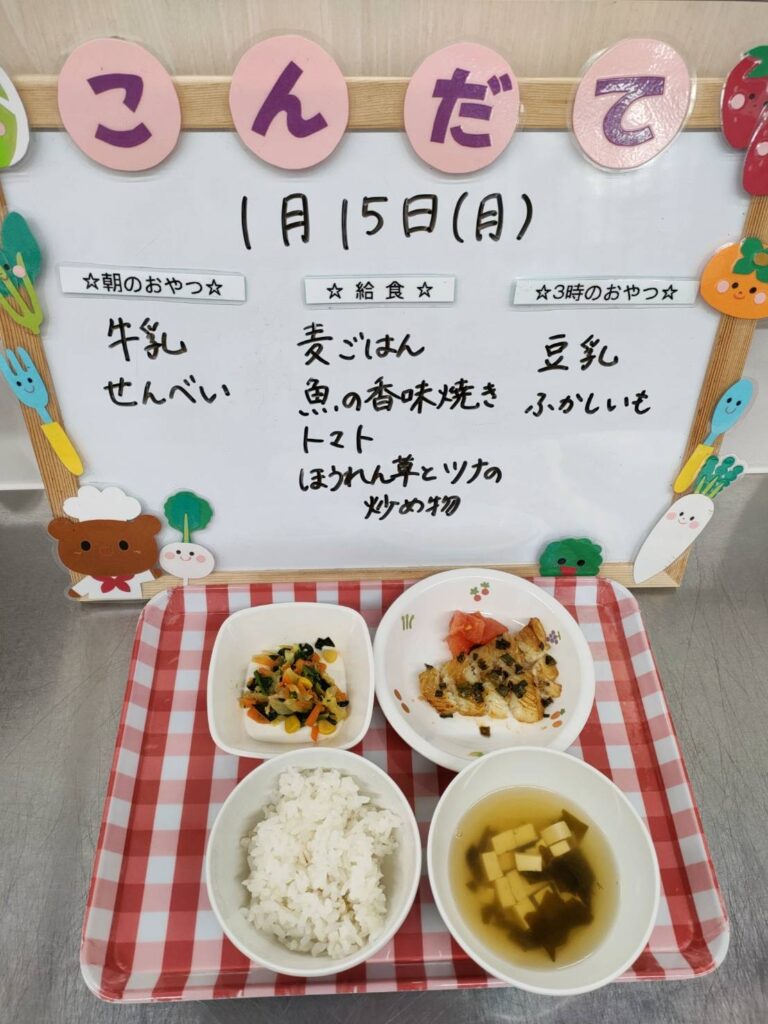 こんだて
1月15日(月)
☆朝のおやつ☆
牛乳
せんべい
☆給食☆
麦ごはん
魚の香味焼き
トマト
ほうれん草とツナの
炒め物
☆3時のおやつ☆
豆乳
ふかしいも